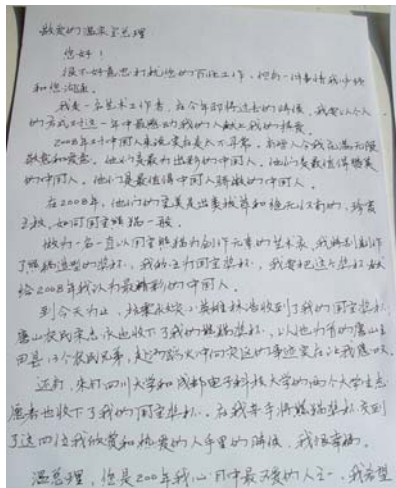 敬爱的温家宝总理:
您好!
很不好意思打扰您的百忙工作,但有一件事情我必须
和您沟通。
我是一名艺术工作者,在今年即将过去的时候,我要以个人
的方式对这一年中最感动我的人献上我的敬意。
2008年对中国人来说实在是太不寻常,有些人令我充满无限
敬意和爱意。他们是最为出彩的中国人,他们是最值得赞美
的中国人,他们是最值得中国人骄傲的中国人。
在2008年,他们的完美是出类拔萃和绝无仅有的,珍贵
至极,如同国宝熊猫一般。
做为一名一直以国宝熊猫为创作元素的艺术家,我特别制作
了熊猫造型的奖杯,我称之为国宝奖杯,我要把这个奖杯献
给2008年我认为最精彩的中国人。
到今天为止,抗震救灾小英雄林浩收到了我的国宝奖杯;
唐山农民宋志永也收下了我的熊猫奖杯,以他为首的唐山玉
田县13个农民兄弟,赴汤蹈火冲向灾区的事迹实在让我感叹。
还有,来打四川大学和成都电子科技大学的两个大学生志
愿者也收下了我的国宝奖杯。在我亲手将熊猫奖杯交到
了这四位我敬爱和热爱的人手里的时候,我很幸福。
温总理,您是2008年我心目中最可爱的人之一,我希望